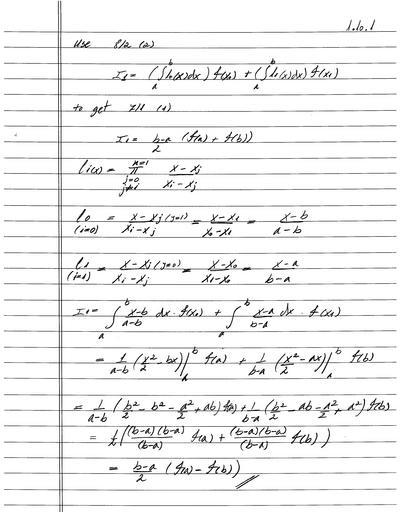 1.10.1
Use 8/2 (2)
I₁ = (∫ₐᵇ l₀(x)dx) f(x₀) + (∫ₐᵇ l₁(x)dx) f(x₁)
to get (1)
I₁ = (b-a)/2 (f(a) + f(b))
lᵢ(x) = ∏ⁿ⁼¹ j=0 j≠i (x - xⱼ)/(xᵢ - xⱼ)
l₀ (i=0) = (x - xⱼ (j=1))/(xᵢ - xⱼ) = (x - x₁)/(x₀ - x₁) = (x - b)/(a - b)
l₁ (i=1) = (x - xⱼ (j=0))/(xᵢ - xⱼ) = (x - x₀)/(x₁ - x₀) = (x - a)/(b - a)
I₁ = ∫ₐᵇ (x-b)/(a-b) dx · f(x₀) + ∫ₐᵇ (x-a)/(b-a) dx · f(x₁)
= 1/(a-b) (x²/2 - bx)|ₐᵇ f(a) + 1/(b-a) (x²/2 - ax)|ₐᵇ f(b)
= 1/(a-b) (b²/2 - b² - a²/2 + ab) f(a) + 1/(b-a) (b²/2 - ab - a²/2 + a²) f(b)
= 1/2 ((b-a)(b-a)/(b-a) f(a) + (b-a)(b-a)/(b-a) f(b))
= (b-a)/2 (f(a) - f(b))